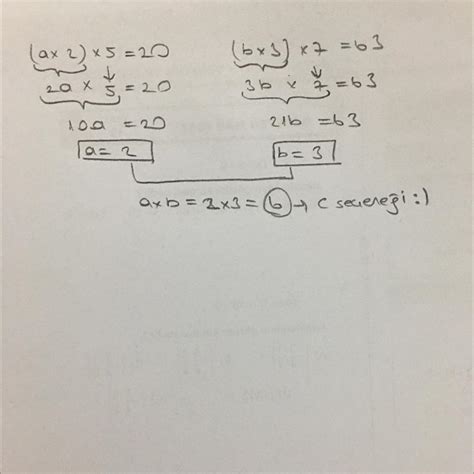 (a x 2) x 5 = 20
2a x 5 = 20
10a = 20
a = 2
(b x 3) x 7 = 63
3b x 7 = 63
21b = 63
b = 3
a x b = 2 x 3 = 6 → C seçeneği :)